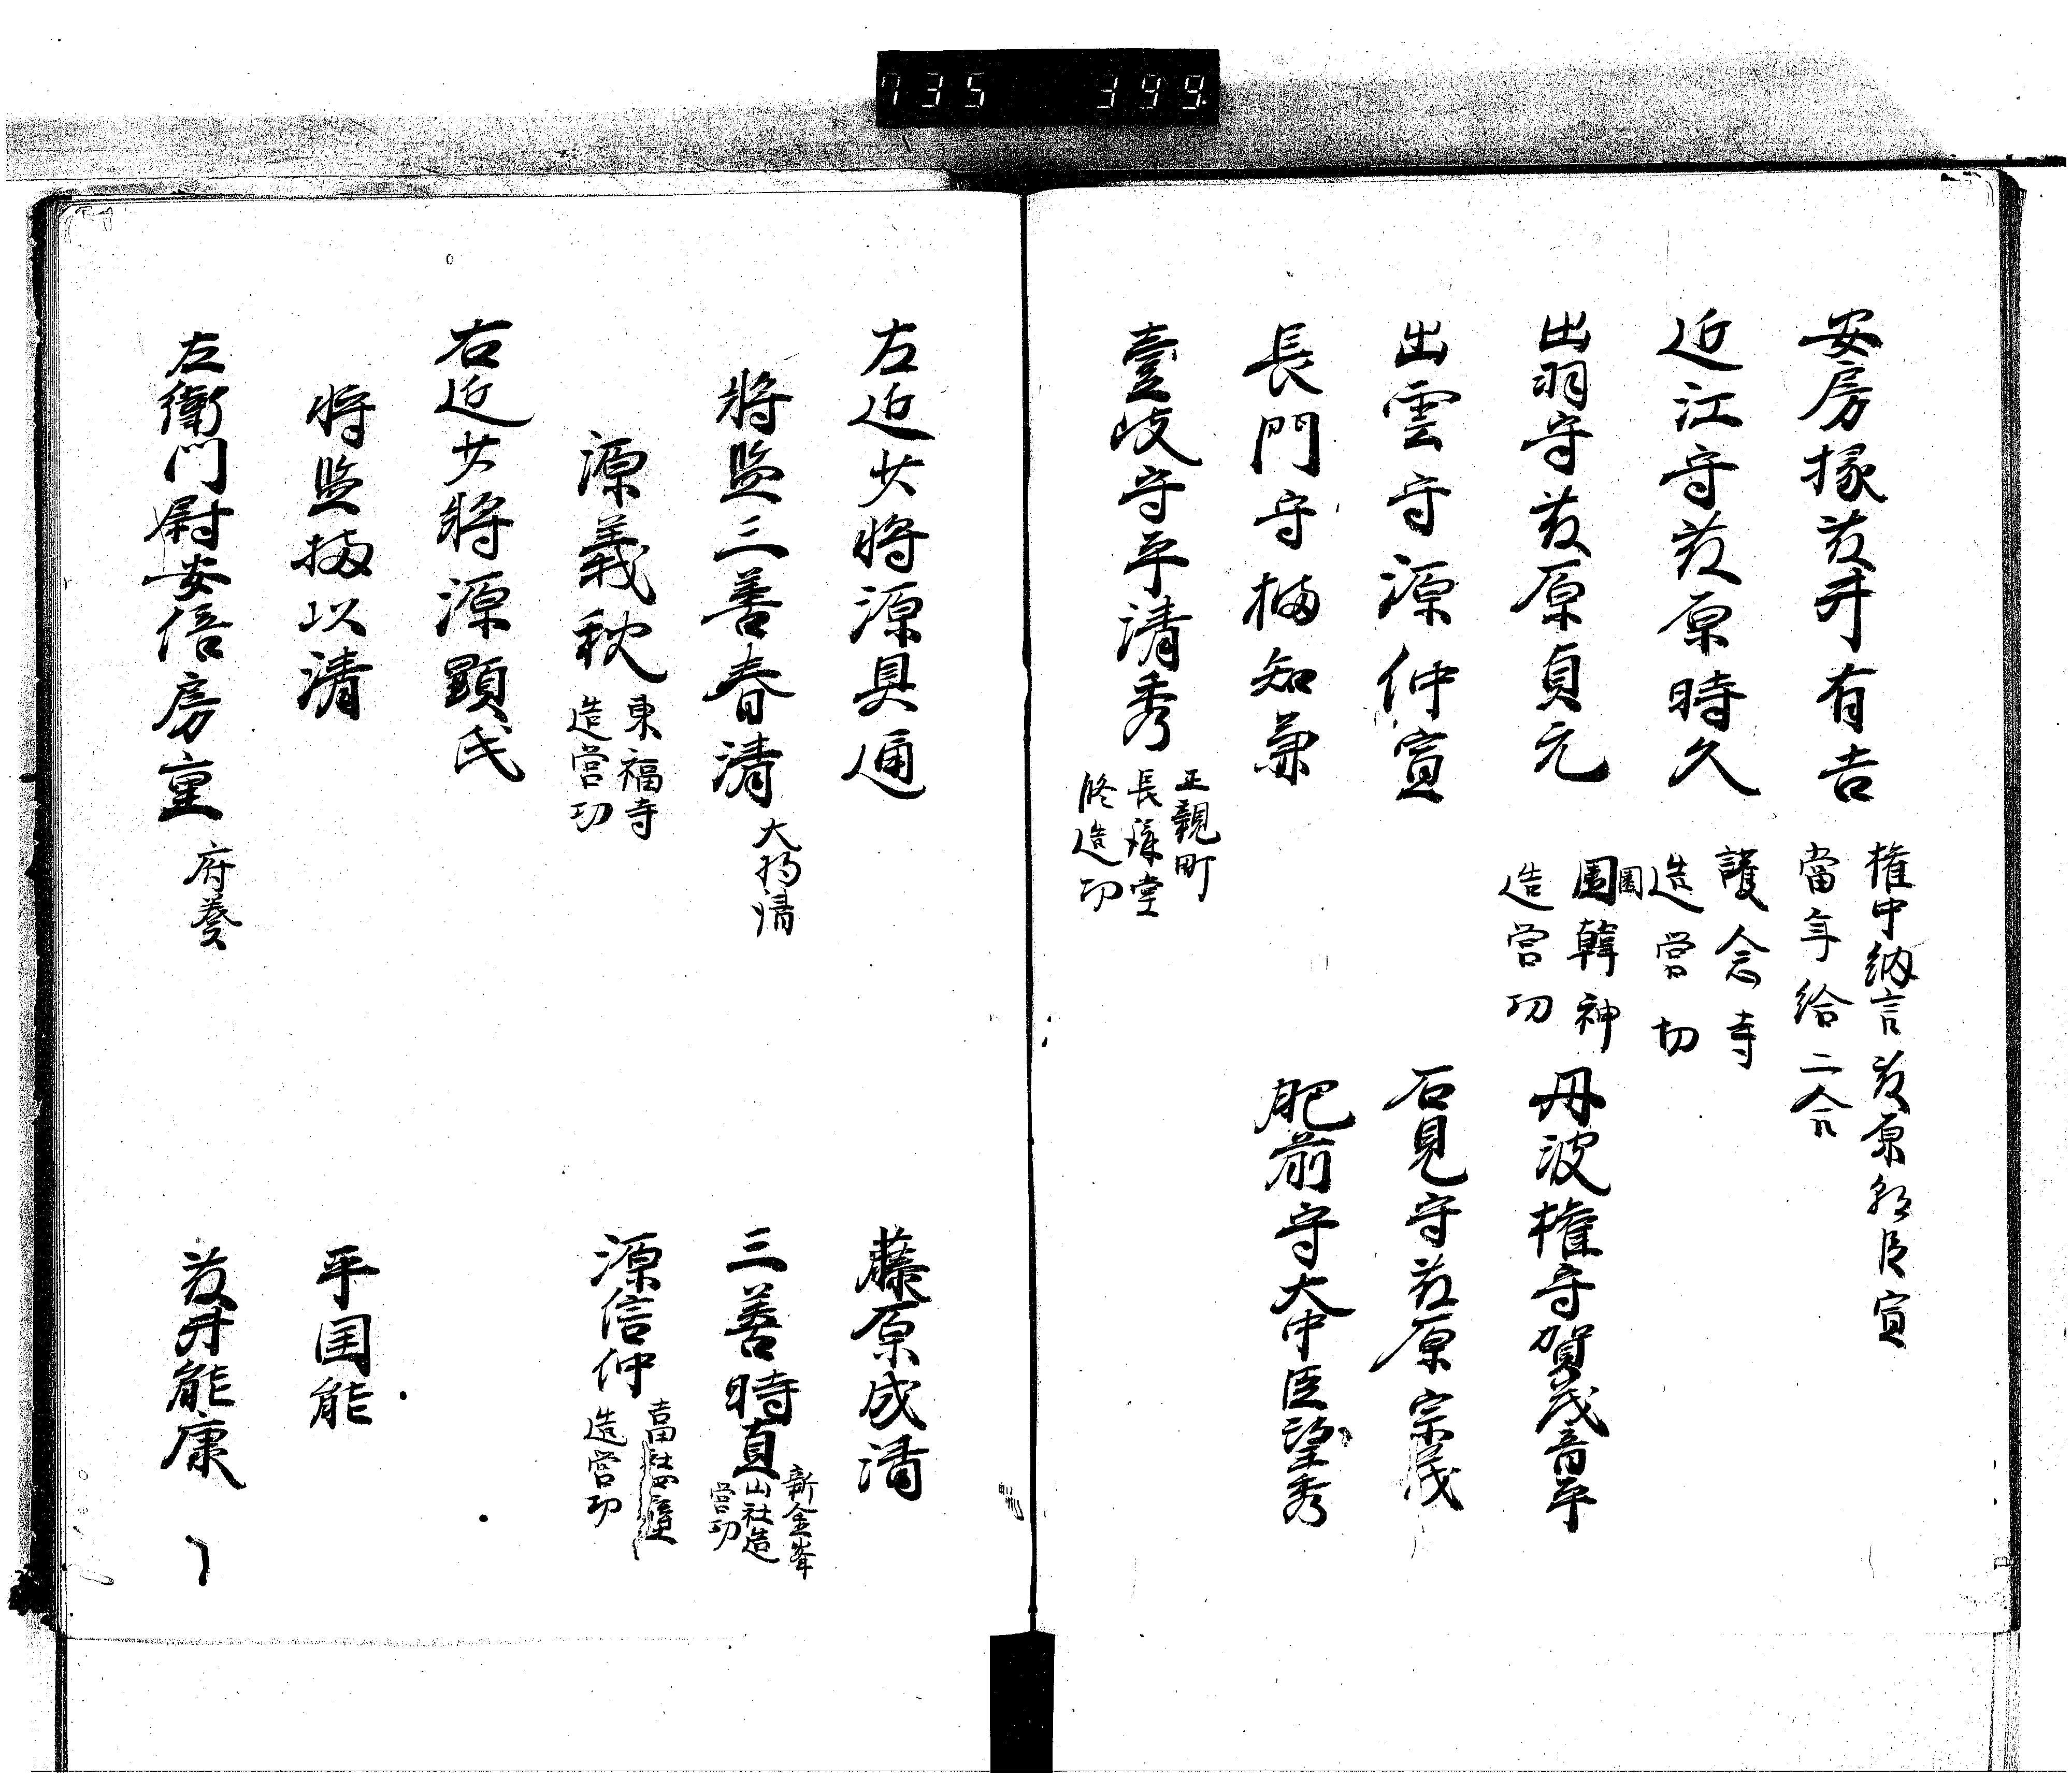 735 399
安房掾藤井有吉
權中納言藤原朝臣宣
當年給二合
近江守藤原時久
護念寺
造営功
出羽守藤原貞元
園韓神
園
造営功
丹波權守賀茂音平
出雲守源仲宣
石見守藤原宗茂
長門守橘知兼
肥前守大中臣望秀
壹岐守平清秀
正親町
長講堂
修造功
左近少将源具通
藤原成清
将監三善春清
大粮清
三善時直
新金峯
山社造
営功
源義秋
東福寺
造営功
源信仲
吉田社四
造営功
右近少将源顕氏
将監橘以清
平国能
左衛門尉安倍房重
府奏
藤井能康